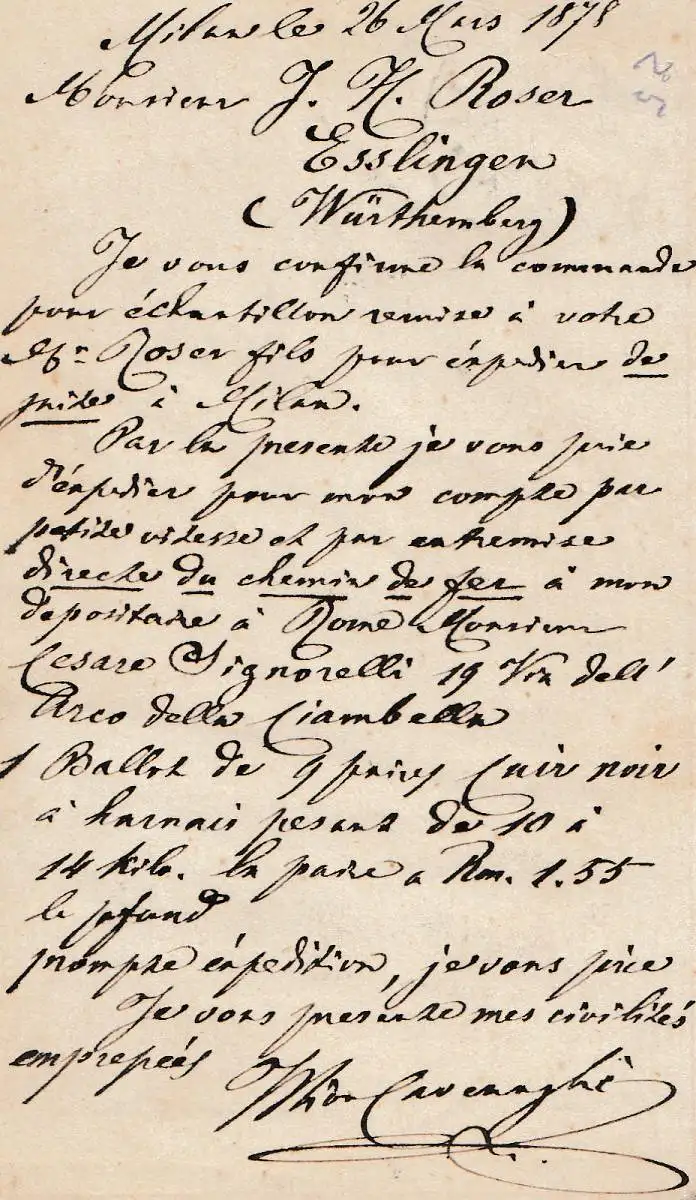 Milan le 26 Mars 1878
Monsieur J. H. Roser
Esslingen
(Württemberg)
Je vous confirme la commande
pour échantillon remise à votre
Mr Roser fils pour éxpedier de
suite à Milan.
Par la presente je vous prie
d'éxpedier pour mon compte par
petite vitesse et par entremise
directe du chemin de fer à mon
depositaire à Rome Monsieur
Cesare Signorelli 19 Via dell'
Arco della Ciambella
1 Ballot de 9 paires Cuir noir
à harnais pesant de 10 à
14 kilo. la paire a Rm. 1.55
le pfund
prompte éxpedition, je vous prie
Je vous presente mes civilités
empressées
Cavenaghi